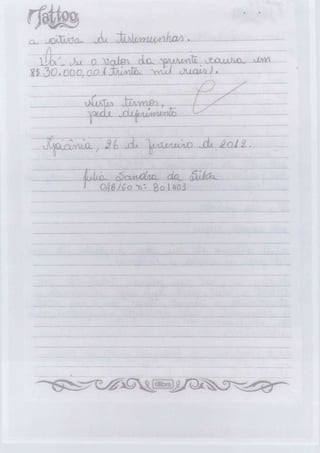 Tattoo
a oitiva de testemunhas.
Dá-se o valor da presente causa em
R$ 30.000,00 (trinta mil reais).
Nestes termos,
pede deferimento
Goiânia, 26 de fevereiro de 2012.
Julia Sandra da Silva
OAB/GO nº 801403
tilibra